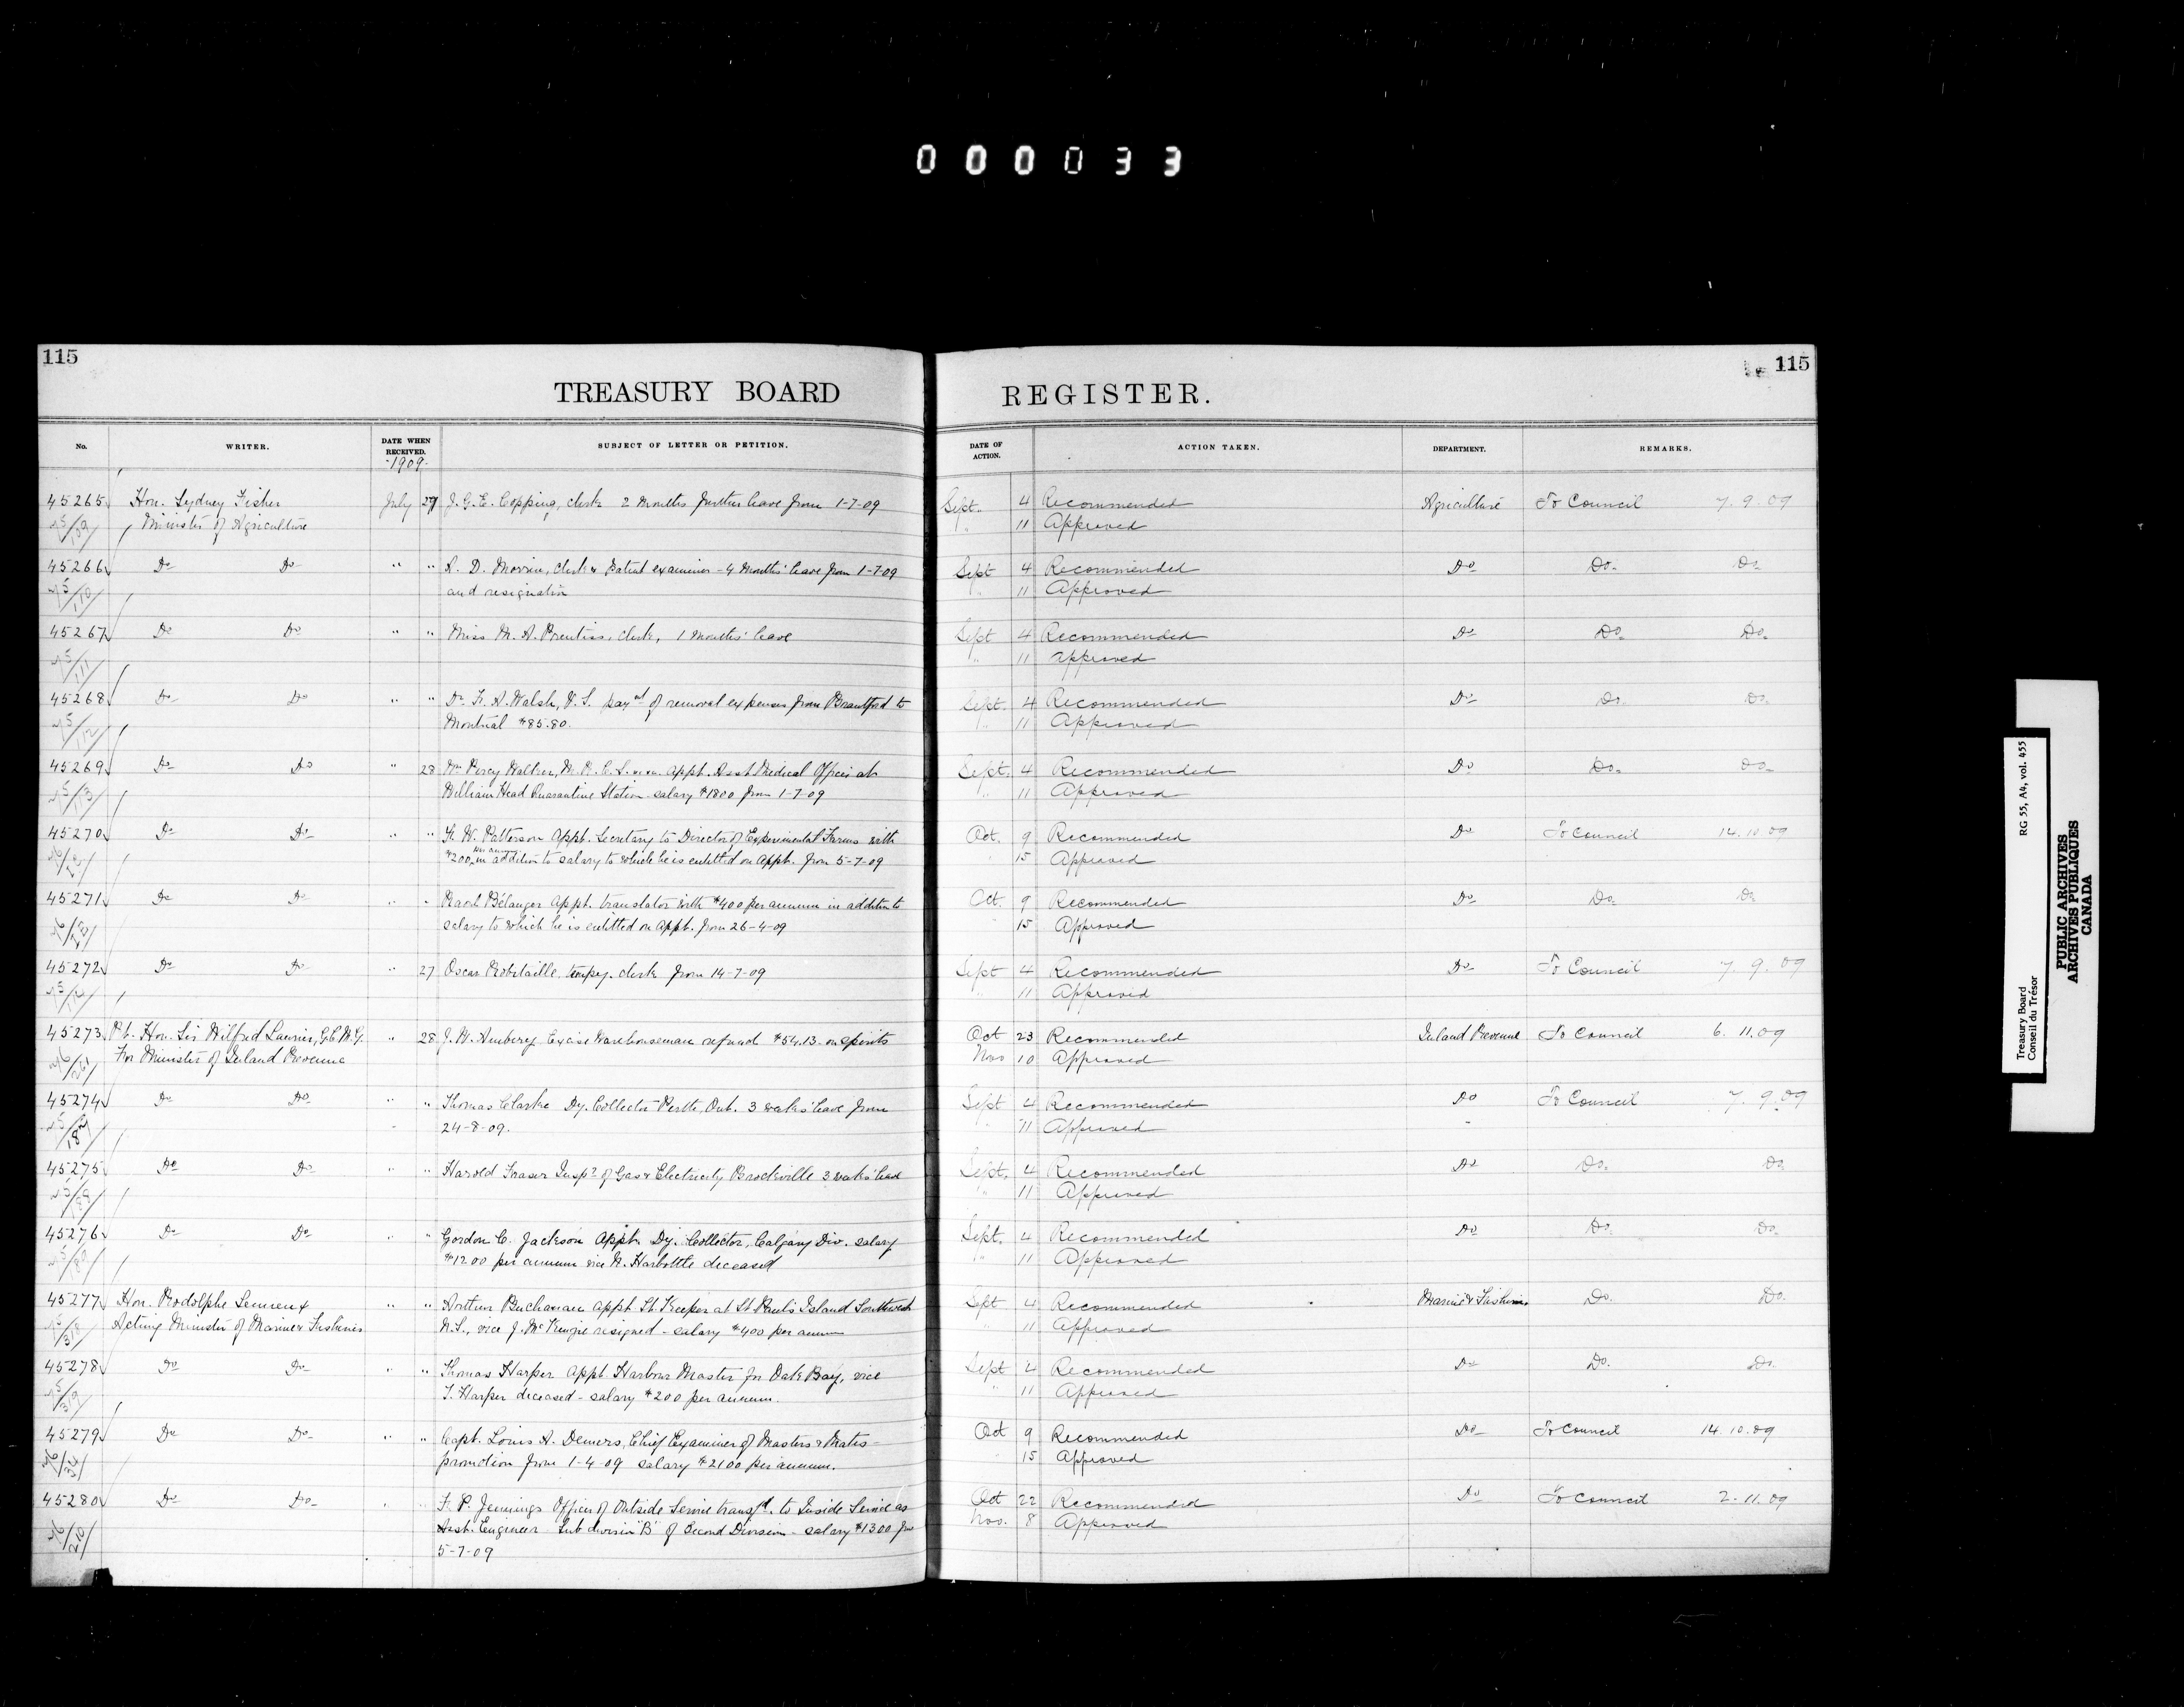 000033
115
115
TREASURY BOARD REGISTER.
No. WRITER. DATE WHEN RECEIVED. SUBJECT OF LETTER OR PETITION. DATE OF ACTION. ACTION TAKEN. DEPARTMENT. REMARKS.
-1909-
45265 Hon. Sydney Fisher July 29 J. G. E. Copping, clerk 2 Months further leave from 1-7-09 Sept. 4 Recommended Agriculture To Council 7.9.09
Minister of Agriculture " 11 Approved
45266 Do Do " " A. D. Morrin, clerk & Patent examiner - 4 Months' leave from 1-7-09 Sept 4 Recommended Do Do. Do
and resignation " 11 Approved
45267 Do Do " " Miss M. A. Prentiss, clerk, 1 Months' leave Sept 4 Recommended Do Do. Do.
" 11 Approved
45268 Do Do " " Dr F. A. Walsh, V. S. paynt of removal expenses from Brantford to Sept. 4 Recommended Do Do. Do.
Montreal $85.80. " 11 Approved
45269 Do Do " 28 Wm Percy Walker, M. R. C. S. appt. Asst Medical Officer at Sept. 4 Recommended Do Do. Do
William Head Quarantine Station - salary $1800 from 1-7-09 " 11 Approved
45270 Do Do " " F. W. Patterson Appt. Secretary to Director of Experimental Farms with Oct. 9 Recommended Do To Council 14.10.09
$200 per ann. in addition to salary to which he is entitled on Appt. from 5-7-09 " 15 Approved
45271 Do Do " " Bélanger Appt. translator with $400 per annum in addition to Oct. 9 Recommended Do Do. Do
salary to which he is entitled on appt. from 26-4-09 " 15 Approved
45272 Do Do " 27 Oscar Robitaille tempy. clerk from 14-7-09 Sept 4 Recommended Do To Council 7.9.09
" 11 Approved
45273 Rt. Hon. Sir Wilfred Laurier, G.C.M.G. " 28 J. W. Amberg Excise Warehouseman refund $54.13 on spirits Oct 23 Recommended Inland Revenue To Council 6.11.09
For Minister of Inland Revenue Nov 10 Approved
45274 Do Do " " Thomas Clarke Dy. Collector Perth, Ont. 3 weeks' leave from Sept 4 Recommended Do To Council 7.9.09
24-8-09. " 11 Approved
45275 Do Do " " Harold Fraser Inspr of Gas & Electricity Brockville 3 weeks' leave Sept. 4 Recommended Do Do. Do
" 11 Approved
45276 Do Do " " Gordon C. Jackson Appt. Dy. Collector, Calgary Div. salary Sept. 4 Recommended Do Do. Do.
$1200 per annum vice N. Harbottle deceased " 11 Approved
45277 Hon. Rodolphe Lemieux " " Arthur Buchanan appt. Lt. Keeper at St. Paul's Island Southwest Sept 4 Recommended Marine & Fisheries Do. Do.
Acting Minister of Marine & Fisheries N.S., vice J. McKenzie resigned - salary $400 per annum " 11 Approved
45278 Do Do " " Thomas Harper Appt. Harbour Master for Oak Bay, vice Sept 4 Recommended Do Do. Do.
T. Harper deceased - salary $200 per annum. " 11 Approved
45279 Do Do " " Capt. Louis A. Demers, Chief Examiner of Masters & Mates - Oct 9 Recommended Do To Council 14.10.09
promotion from 1-4-09 salary $2100 per annum. 15 Approved
45280 Do Do " " F. P. Jennings Officer of Outside Service transfd. to Inside Service as Oct 22 Recommended Do To Council 2-11.09
Asst. Engineer - Subdivision "B" of Second Division - salary $1300 from Nov. 8 Approved
5-7-09
Treasury Board RG 55, A4, vol. 455
Conseil du Trésor
PUBLIC ARCHIVES
ARCHIVES PUBLIQUES
CANADA